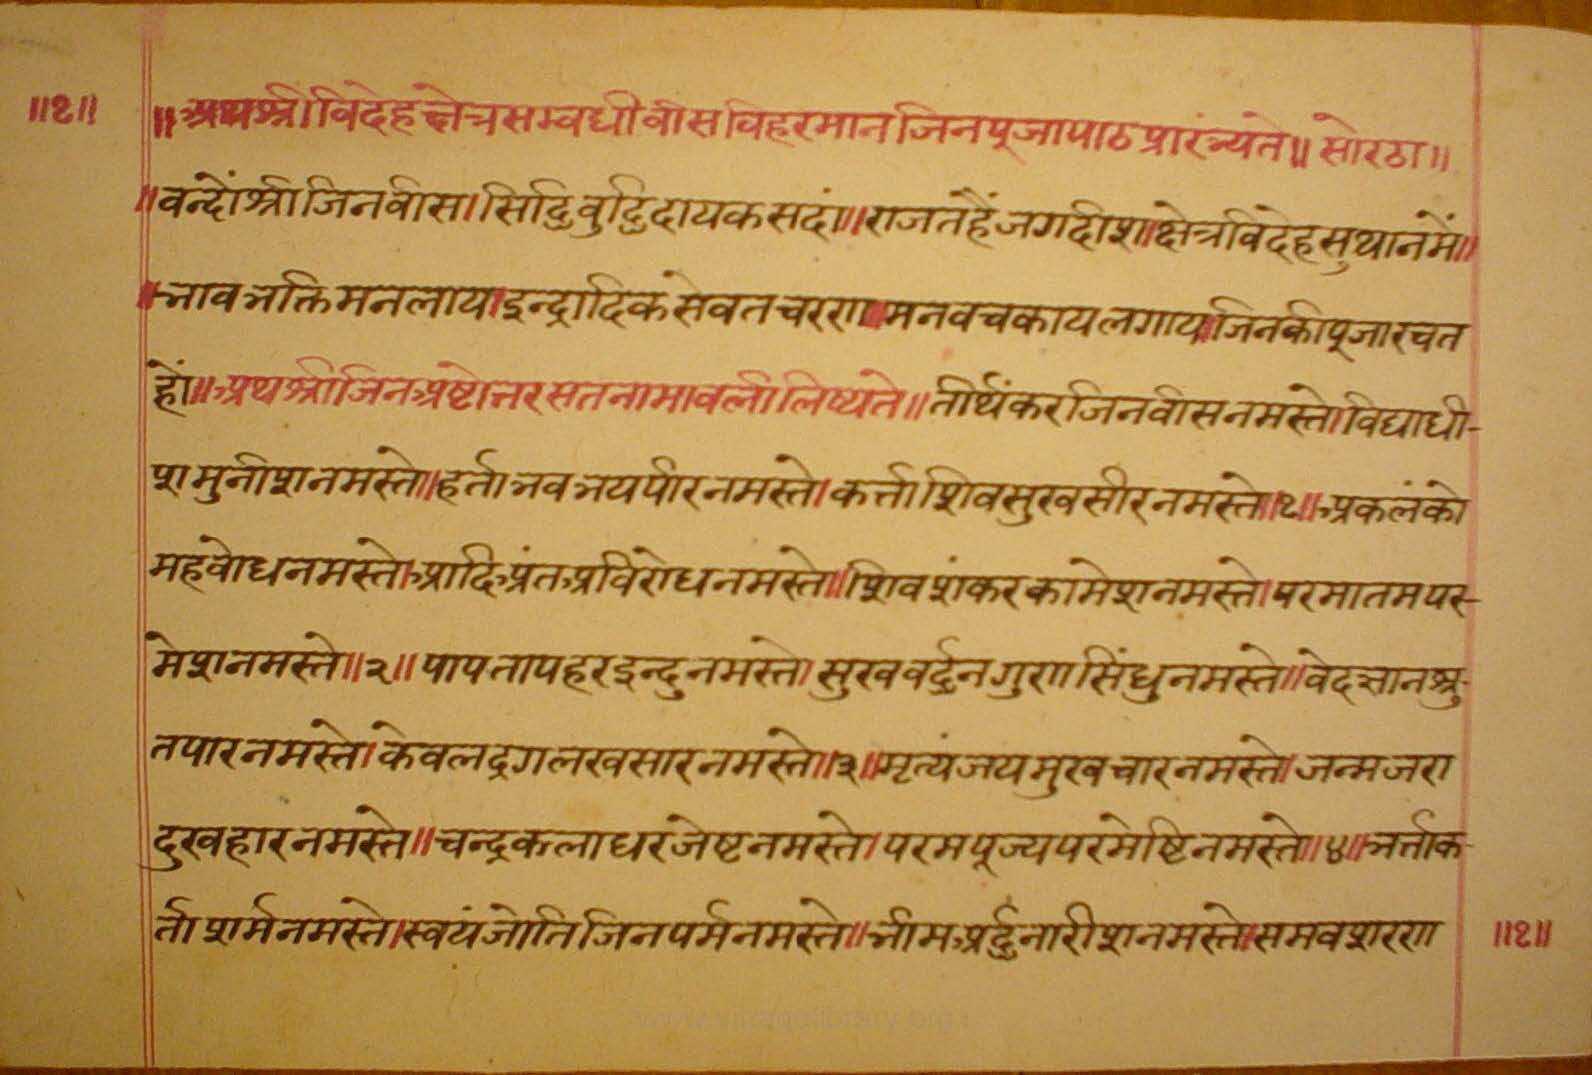 ॥१॥ ॥अथश्रीविदेहक्षेत्रसम्वधीवीसविहरमानजिनपूजापाठप्रारंभ्यते॥ सोरठा॥
॥वन्दोंश्रीजिनवीस।सिद्धिवुद्धिदायकसदां॥राजतहैंजगदीश।क्षेत्रविदेहसुथानमें॥
॥भावभक्तिमनलाय।इन्द्रादिकसेवतचरण॥मनवचकायलगाय।जिनकीपूजारचत
हों॥अथश्रीजिनअष्टोत्तरसतनामावलीलिष्यते॥तीर्थंकरजिनवीसनमस्ते।विद्याधी-
शमुनीशनमस्ते॥हर्ताभवभयपीरनमस्ते।कर्त्ताशिवसुखसीरनमस्ते॥१॥अकलंको
महवोधनमस्ते।आदिअंतअविरोधनमस्ते॥शिवशंकरकामेशनमस्ते।परमातमपर-
मेशनमस्ते॥२॥पापतापहरइन्दुनमस्ते।सुखवर्द्धनगुणसिंधुनमस्ते॥वेदज्ञानश्रु-
तपारनमस्ते।केवलद्रगलखसारनमस्ते॥३॥मृत्यंजयमुखचारनमस्ते।जन्मजरा
दुखहारनमस्ते॥चन्द्रकलाधरजेष्टनमस्ते।परमपूज्यपरमेष्टिनमस्ते॥४॥भर्त्ताक-
र्ताशर्मनमस्ते।स्वयंजोतिजिनपर्मनमस्ते॥भीमअर्द्धनारीशनमस्ते।समवशरण ॥१॥